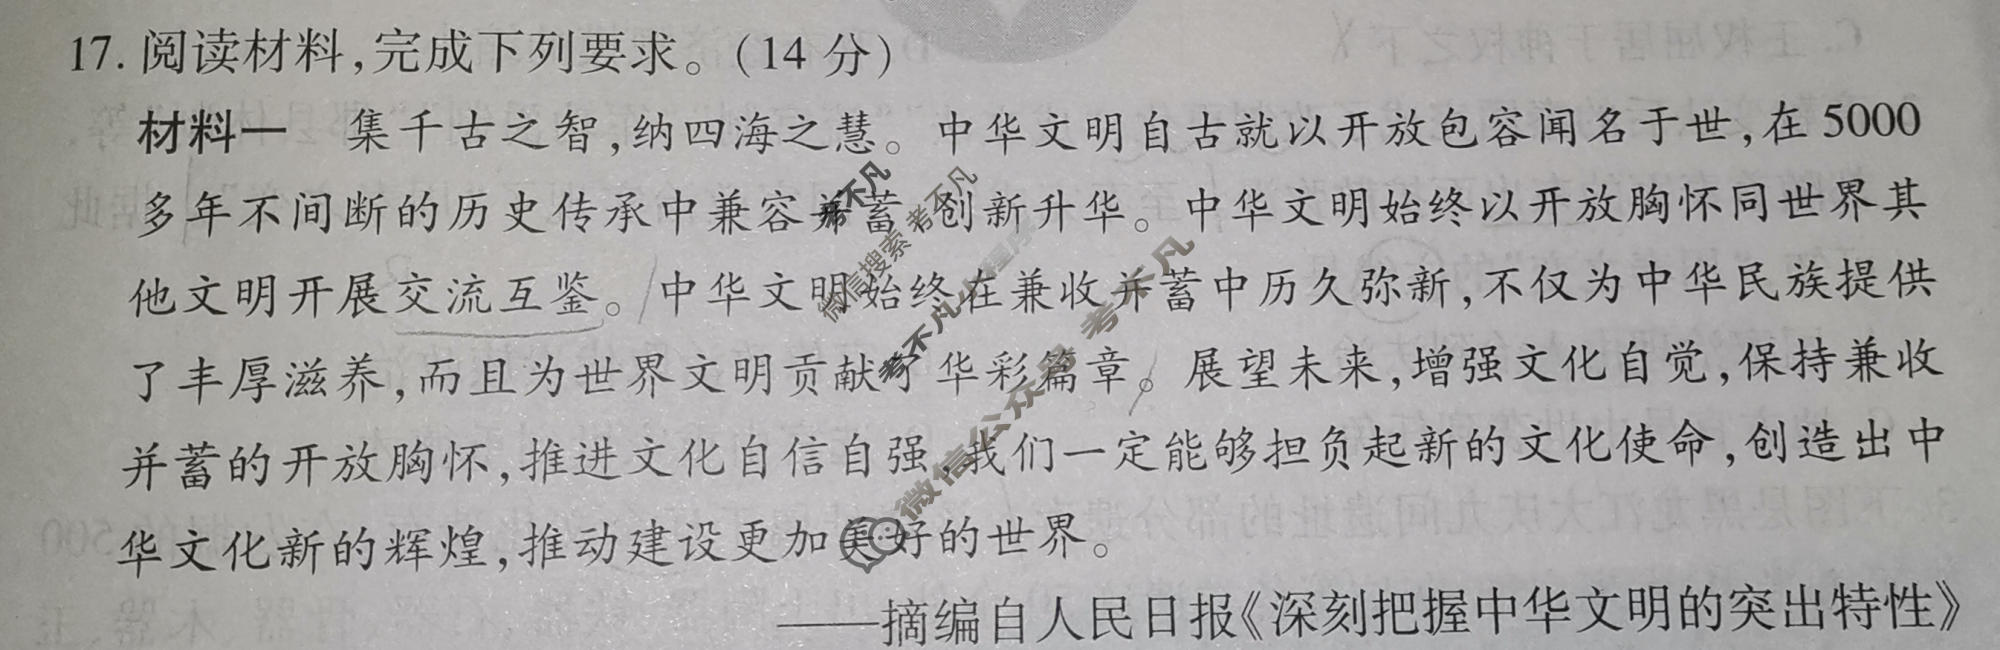 17. 阅读材料,完成下列要求。(14 分)
材料一 集千古之智,纳四海之慧。中华文明自古就以开放包容闻名于世,在 5000
多年不间断的历史传承中兼容并蓄、创新升华。中华文明始终以开放胸怀同世界其
他文明开展交流互鉴。中华文明始终在兼收并蓄中历久弥新,不仅为中华民族提供
了丰厚滋养,而且为世界文明贡献了华彩篇章。展望未来,增强文化自觉,保持兼收
并蓄的开放胸怀,推进文化自信自强,我们一定能够担负起新的文化使命,创造出中
华文化新的辉煌,推动建设更加美好的世界。
——摘编自人民日报《深刻把握中华文明的突出特性》
考不凡
微信搜索 考不凡
考不凡小程序
微信公众号 考不凡